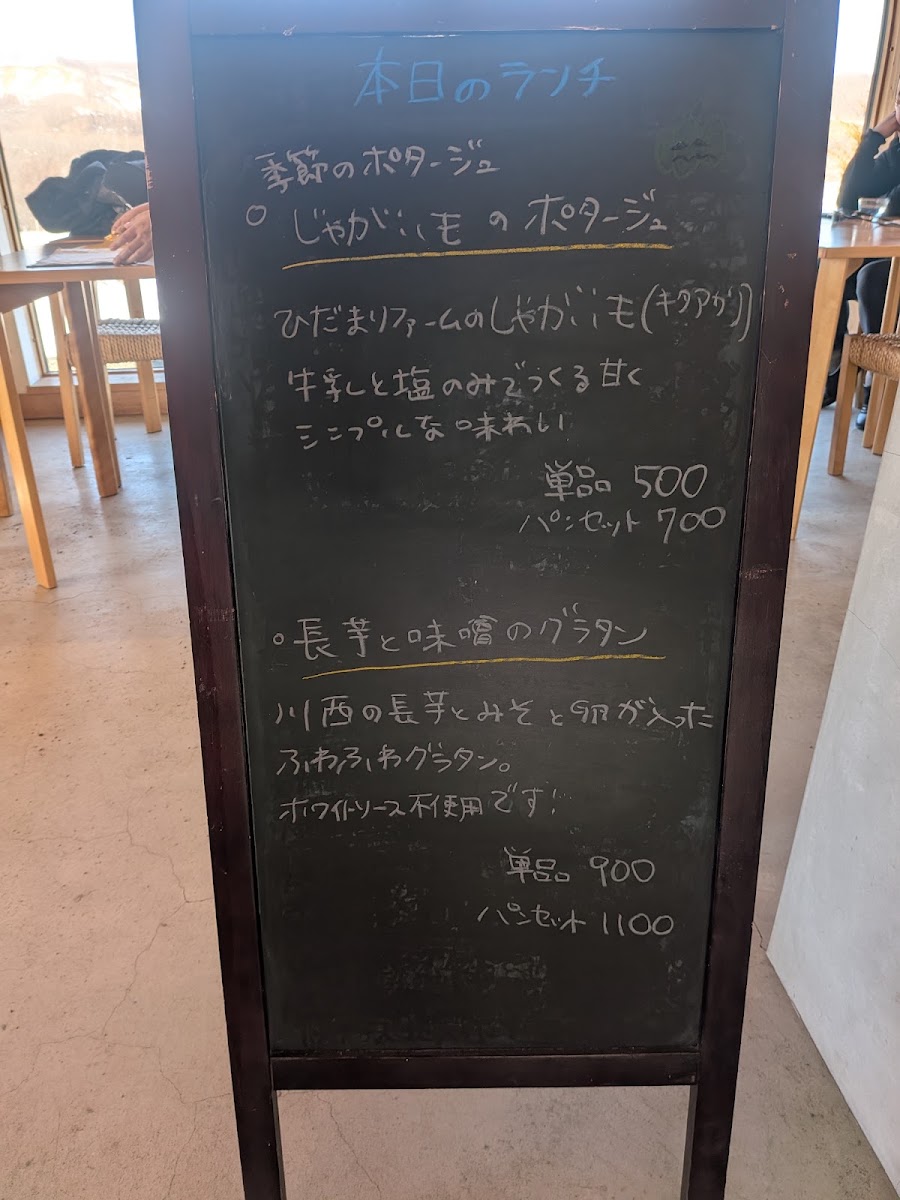 本日のランチ
季節のポタージュ
○ じゃがいものポタージュ
ひだまりファームのじゃがいも(キタアカリ)
牛乳と塩のみでつくる甘く
シンプルな味わい
単品 500
パンセット 700
○長芋と味噌のグラタン
川西の長芋とみそと卵が入った
ふわふわグラタン。
ホワイトソース不使用です!
単品 900
パンセット 1100